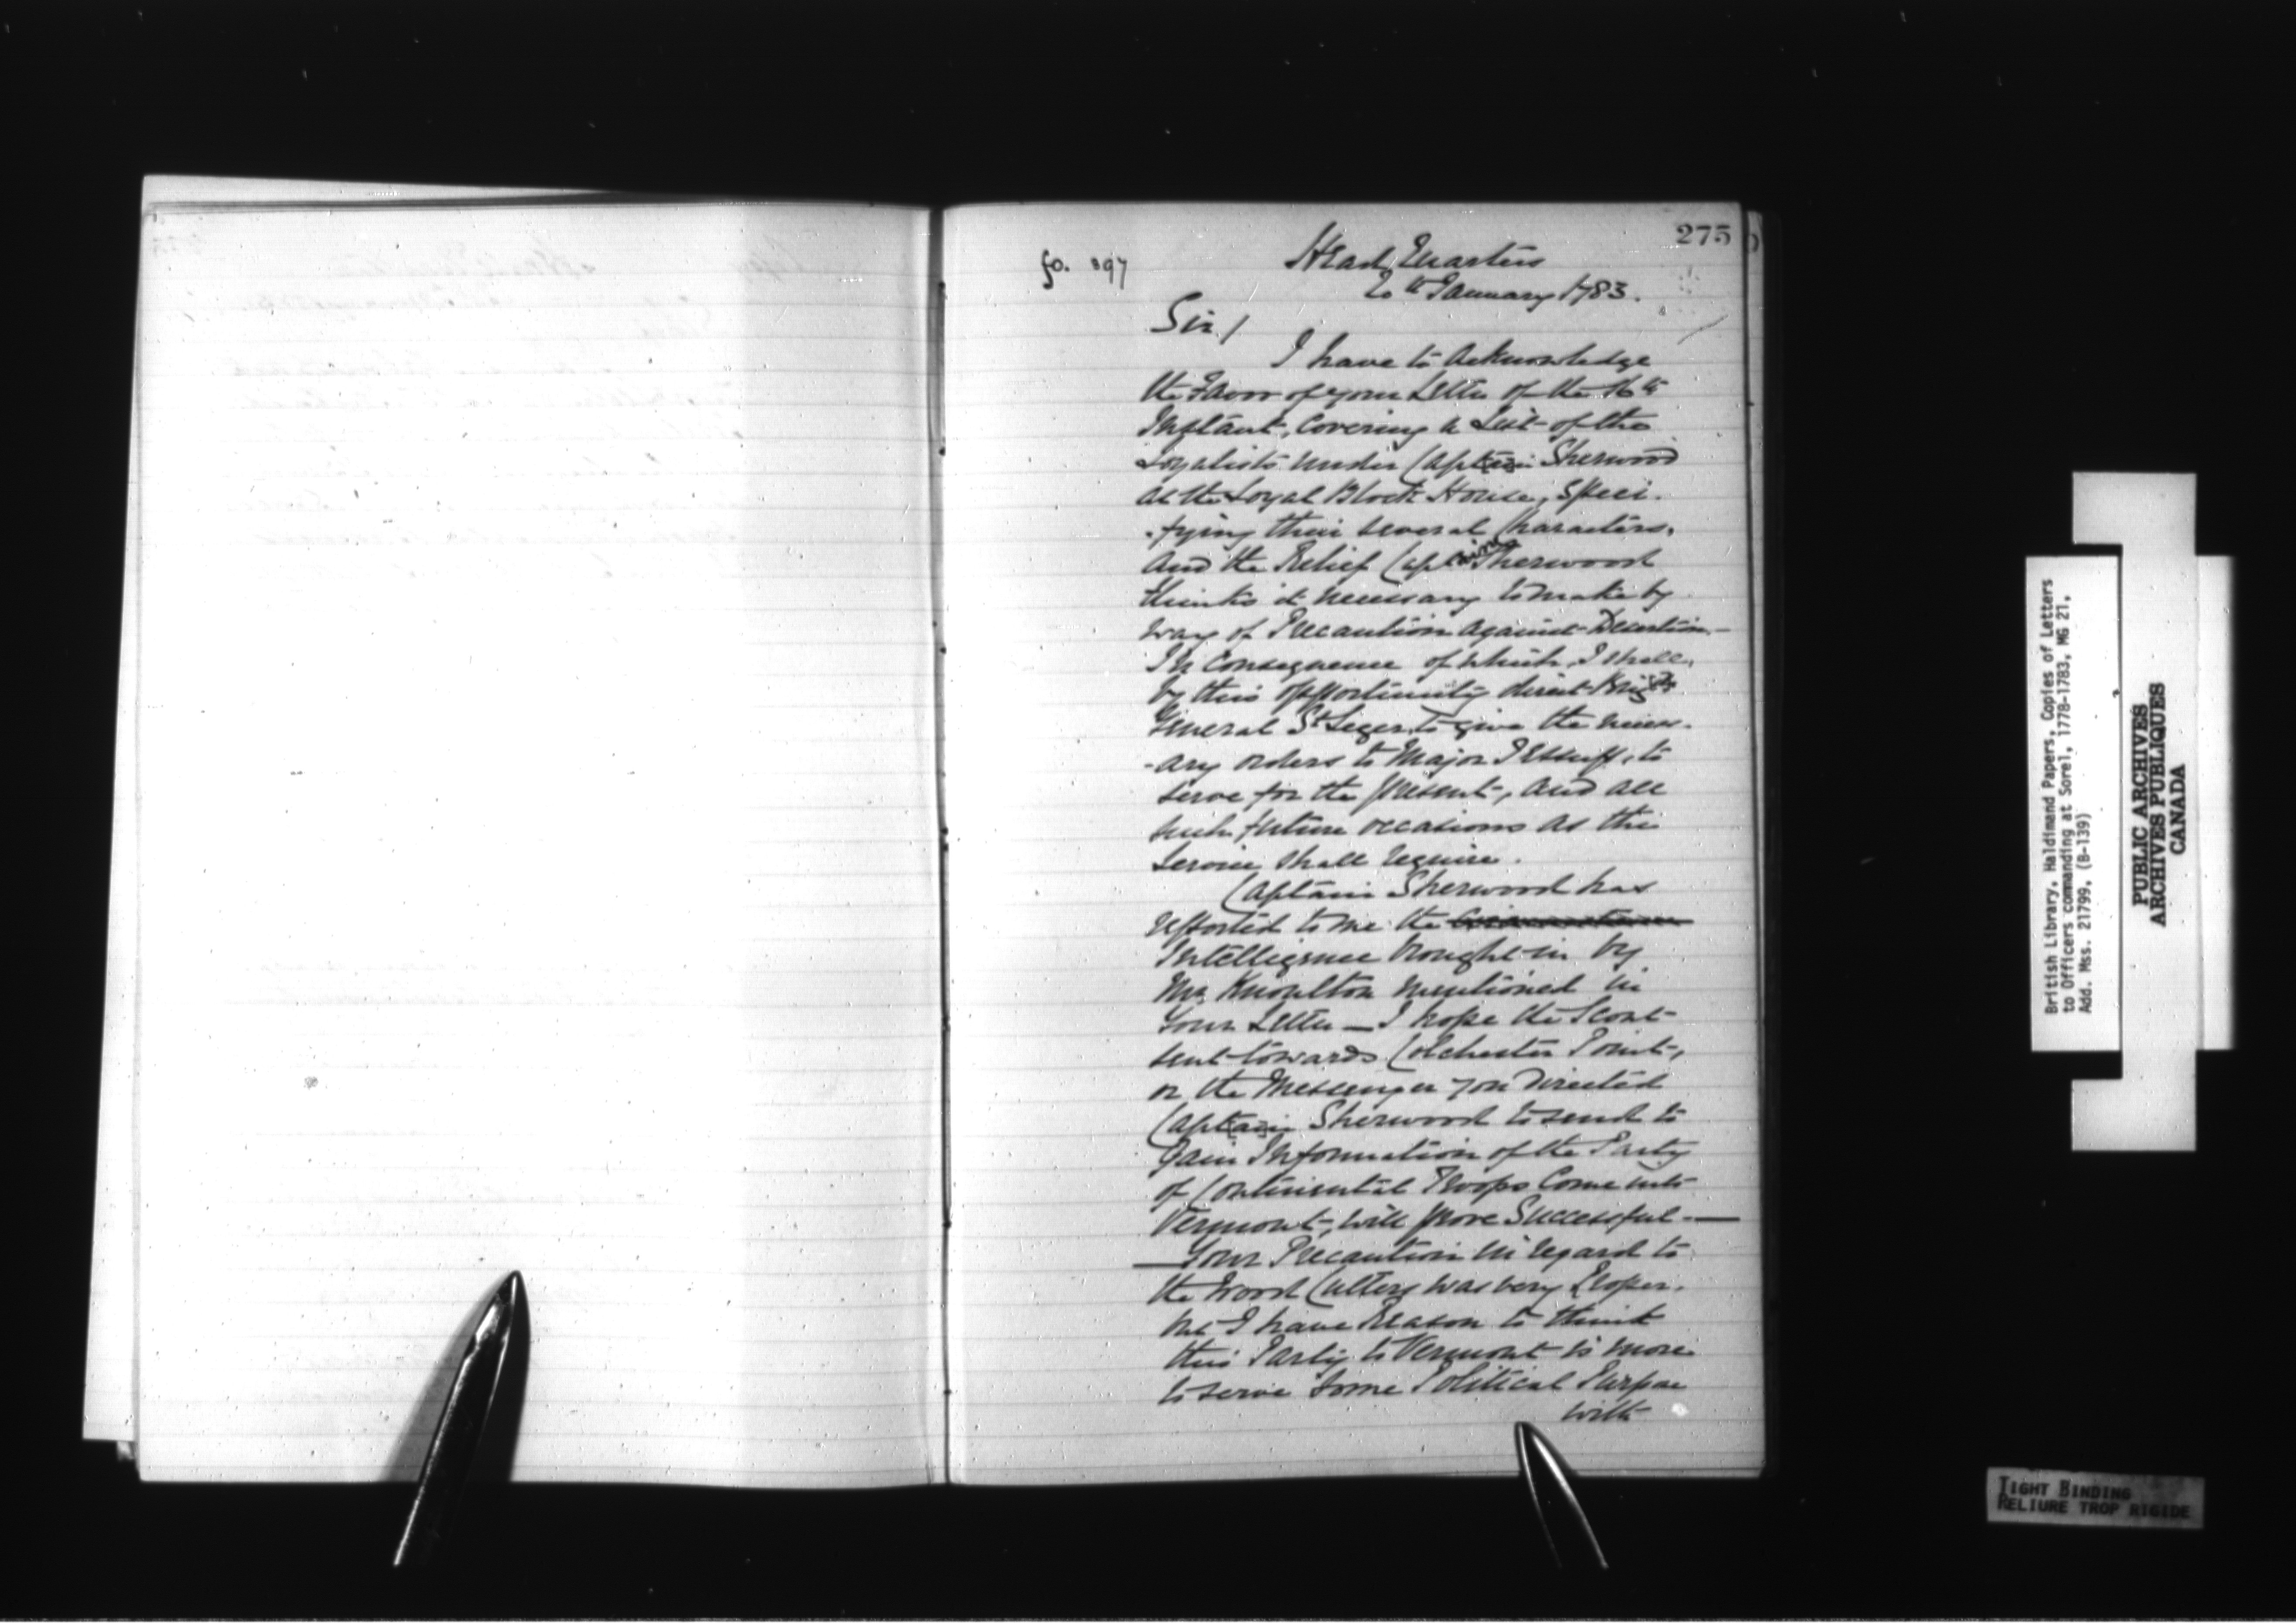 275
fo. 197
Head Quarters
20th January 1783.
Sir/
I have to Acknowledge
the Favor of your Letter of the 16th
Instant, Covering a List of the
Loyalists under Captain Sherwood
at the Loyal Block House, speci-
-fying their several Characters,
And the Relief Captain Sherwood
thinks it necessary to make by
way of Precaution against Desertion—
In Consequence of which, I shall,
by this opportunity direct Brigr
General St Leger, to give the necess-
-ary orders to Major Jessup, to
serve for the present, and all
such future occasions as the
Service shall require.
Captain Sherwood has
reported to me the
Intelligence brought in by
Mr Knowlton mentioned in
Your Letter — I hope the Scout
sent towards Colchester Point,
or the Messenger you Directed
Captain Sherwood to send to
Gain Information of the Party
of Continental Troops Come into
Vermont, will prove Successful.—
—Your Precaution in regard to
the Wood Cutters was very Proper,
but I have Reason to think
this Party to Vermont is more
to serve some Political Purpose
with
British Library, Haldimand Papers, Copies of Letters
to Officers commanding at Sorel, 1778-1783, MG 21,
Add. Mss. 21799, (B-139)
PUBLIC ARCHIVES
ARCHIVES PUBLIQUES
CANADA
TIGHT BINDING
RELIURE TROP RIGIDE